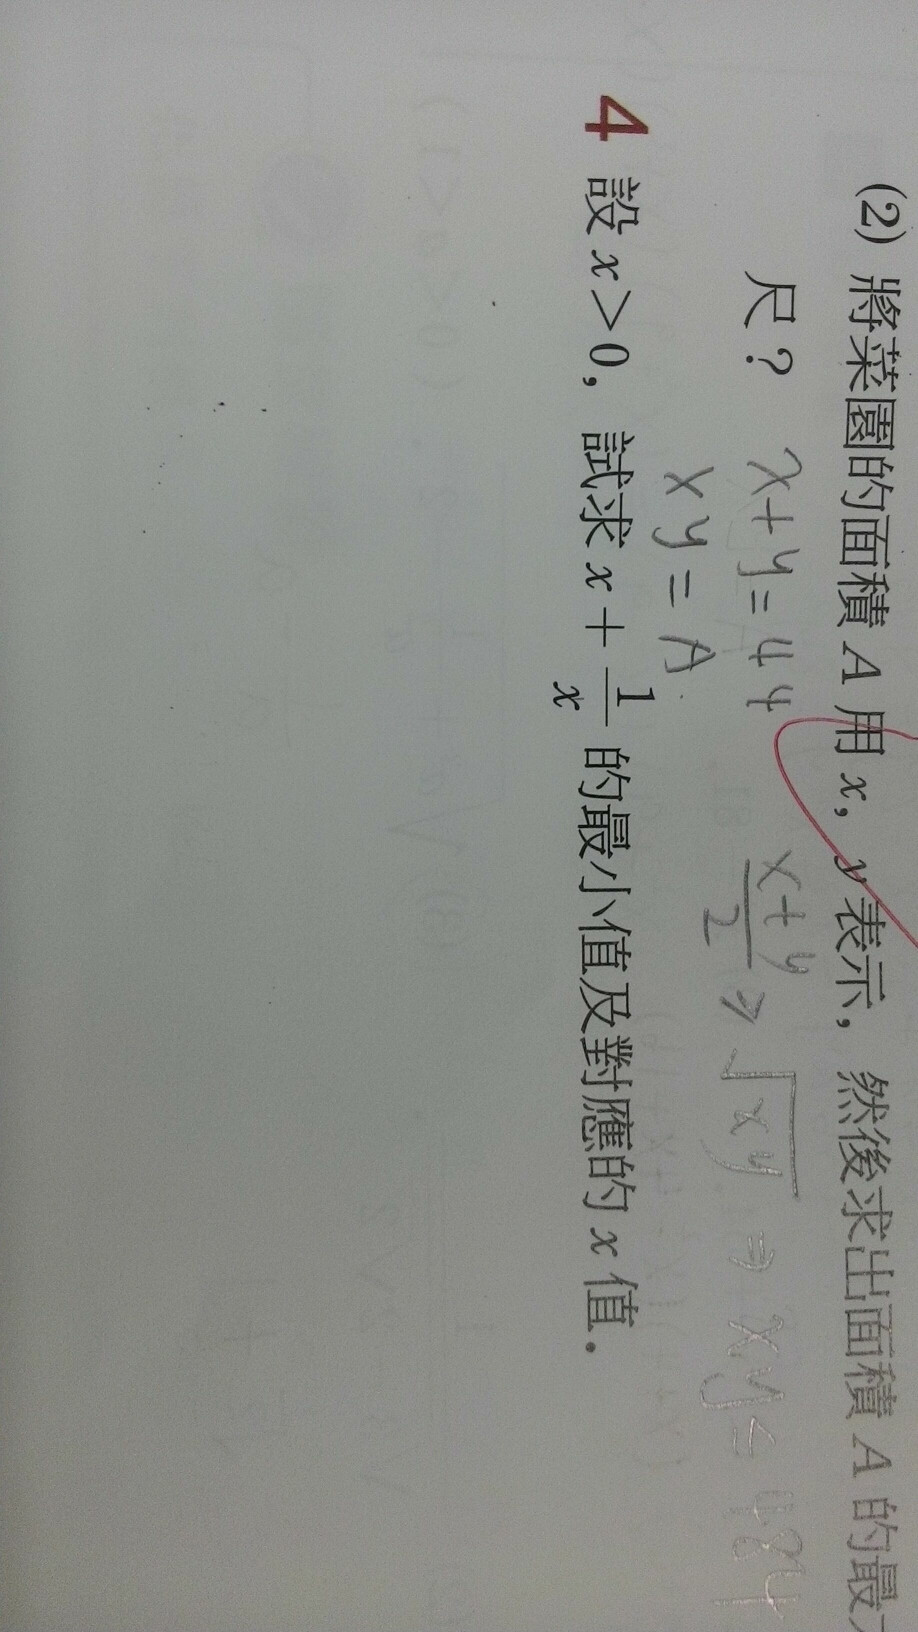 (2) 將菜園的面積 A 用 x, y 表示, 然後求出面積 A 的最
尺? x+y=44 x+y/2 ≥ √xy ⇒ xy ≤ 484
xy = A
4 設 x>0, 試求 x + 1/x 的最小值及對應的 x 值.